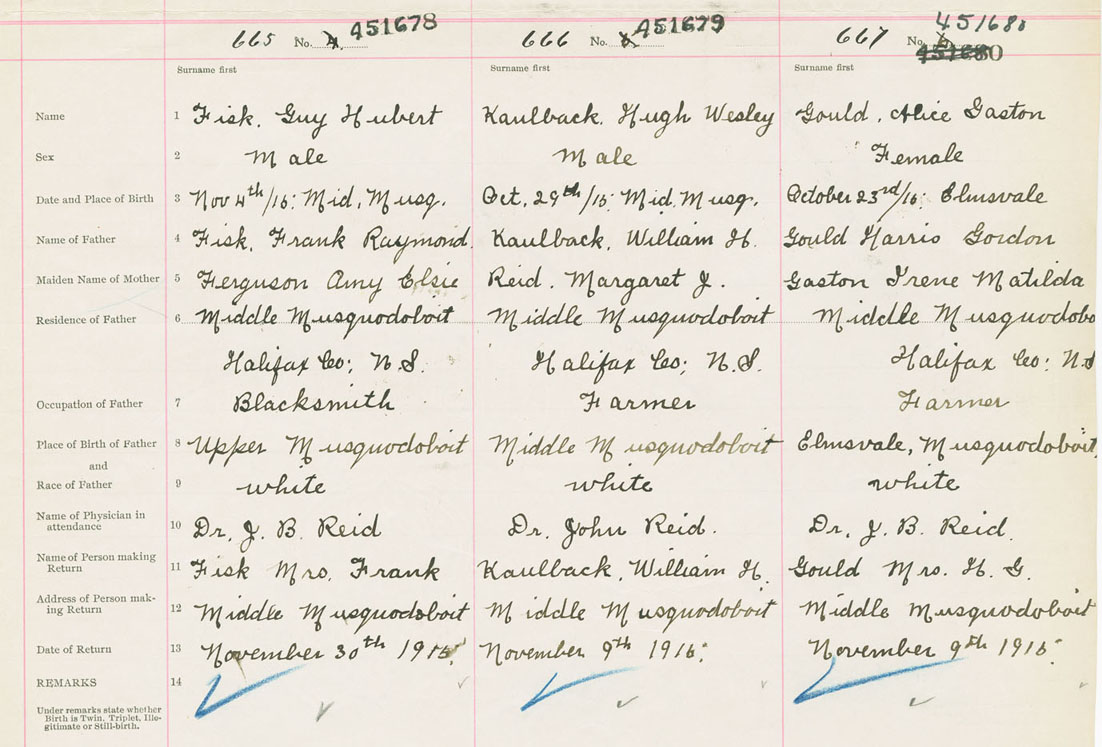 665 No. 4 451678 666 No. 451679 667 No. 451680
451680
Surname first Surname first Surname first
Name 1 Fisk, Guy Hubert Kaulback, Hugh Wesley Gould, Alice Gaston
Sex 2 Male Male Female
Date and Place of Birth 3 Nov 4th/15: Mid. Musq. Oct. 29th/15: Mid. Musq. October 23rd/15: Elmsvale
Name of Father 4 Fisk, Frank Raymond. Kaulback, William H. Gould Harris Gordon
Maiden Name of Mother 5 Ferguson Amy Elsie Reid. Margaret J. Gaston Irene Matilda
Residence of Father 6 Middle Musquodoboit Middle Musquodoboit Middle Musquodobo
Halifax Co; N.S. Halifax Co; N.S. Halifax Co; N.S
Occupation of Father 7 Blacksmith Farmer Farmer
Place of Birth of Father 8 Upper Musquodoboit Middle Musquodoboit Elmsvale, Musquodoboit,
and
Race of Father 9 white white white
Name of Physician in
attendance 10 Dr. J. B. Reid Dr. John Reid. Dr. J. B. Reid.
Name of Person making
Return 11 Fisk Mrs. Frank Kaulback, William H. Gould Mrs. H. G.
Address of Person mak-
ing Return 12 Middle Musquodoboit Middle Musquodoboit Middle Musquodoboit
Date of Return 13 November 30th 1915. November 9th 1915. November 9th 1915.
REMARKS 14
Under remarks state whether
Birth is Twin, Triplet, Ille-
gitimate or Still-birth.